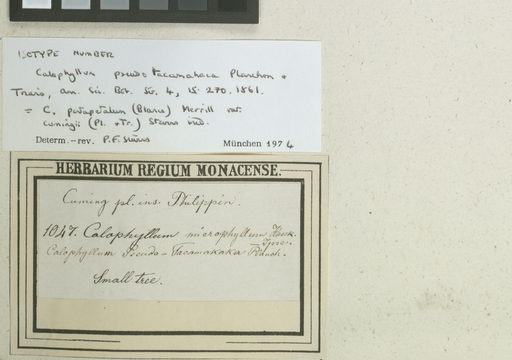 ISOTYPE NUMBER
Calophyllum pseudotacamahaca Planchon &
Triana, Ann. Sci. Bot. Sér. 4, 15: 270. 1861.
= C. (Blanco) Merrill var.
Cumingii (Pl. & Tr.) Stevens ined.
Determ.–rev. P.F. Stevens München 1974
HERBARIUM REGIUM MONACENSE.
Cuming pl. ins. Philippin.
1047. Calophyllum microphyllum
Calophyllum Pseudo-Tacamahaka Planch.
Small tree.